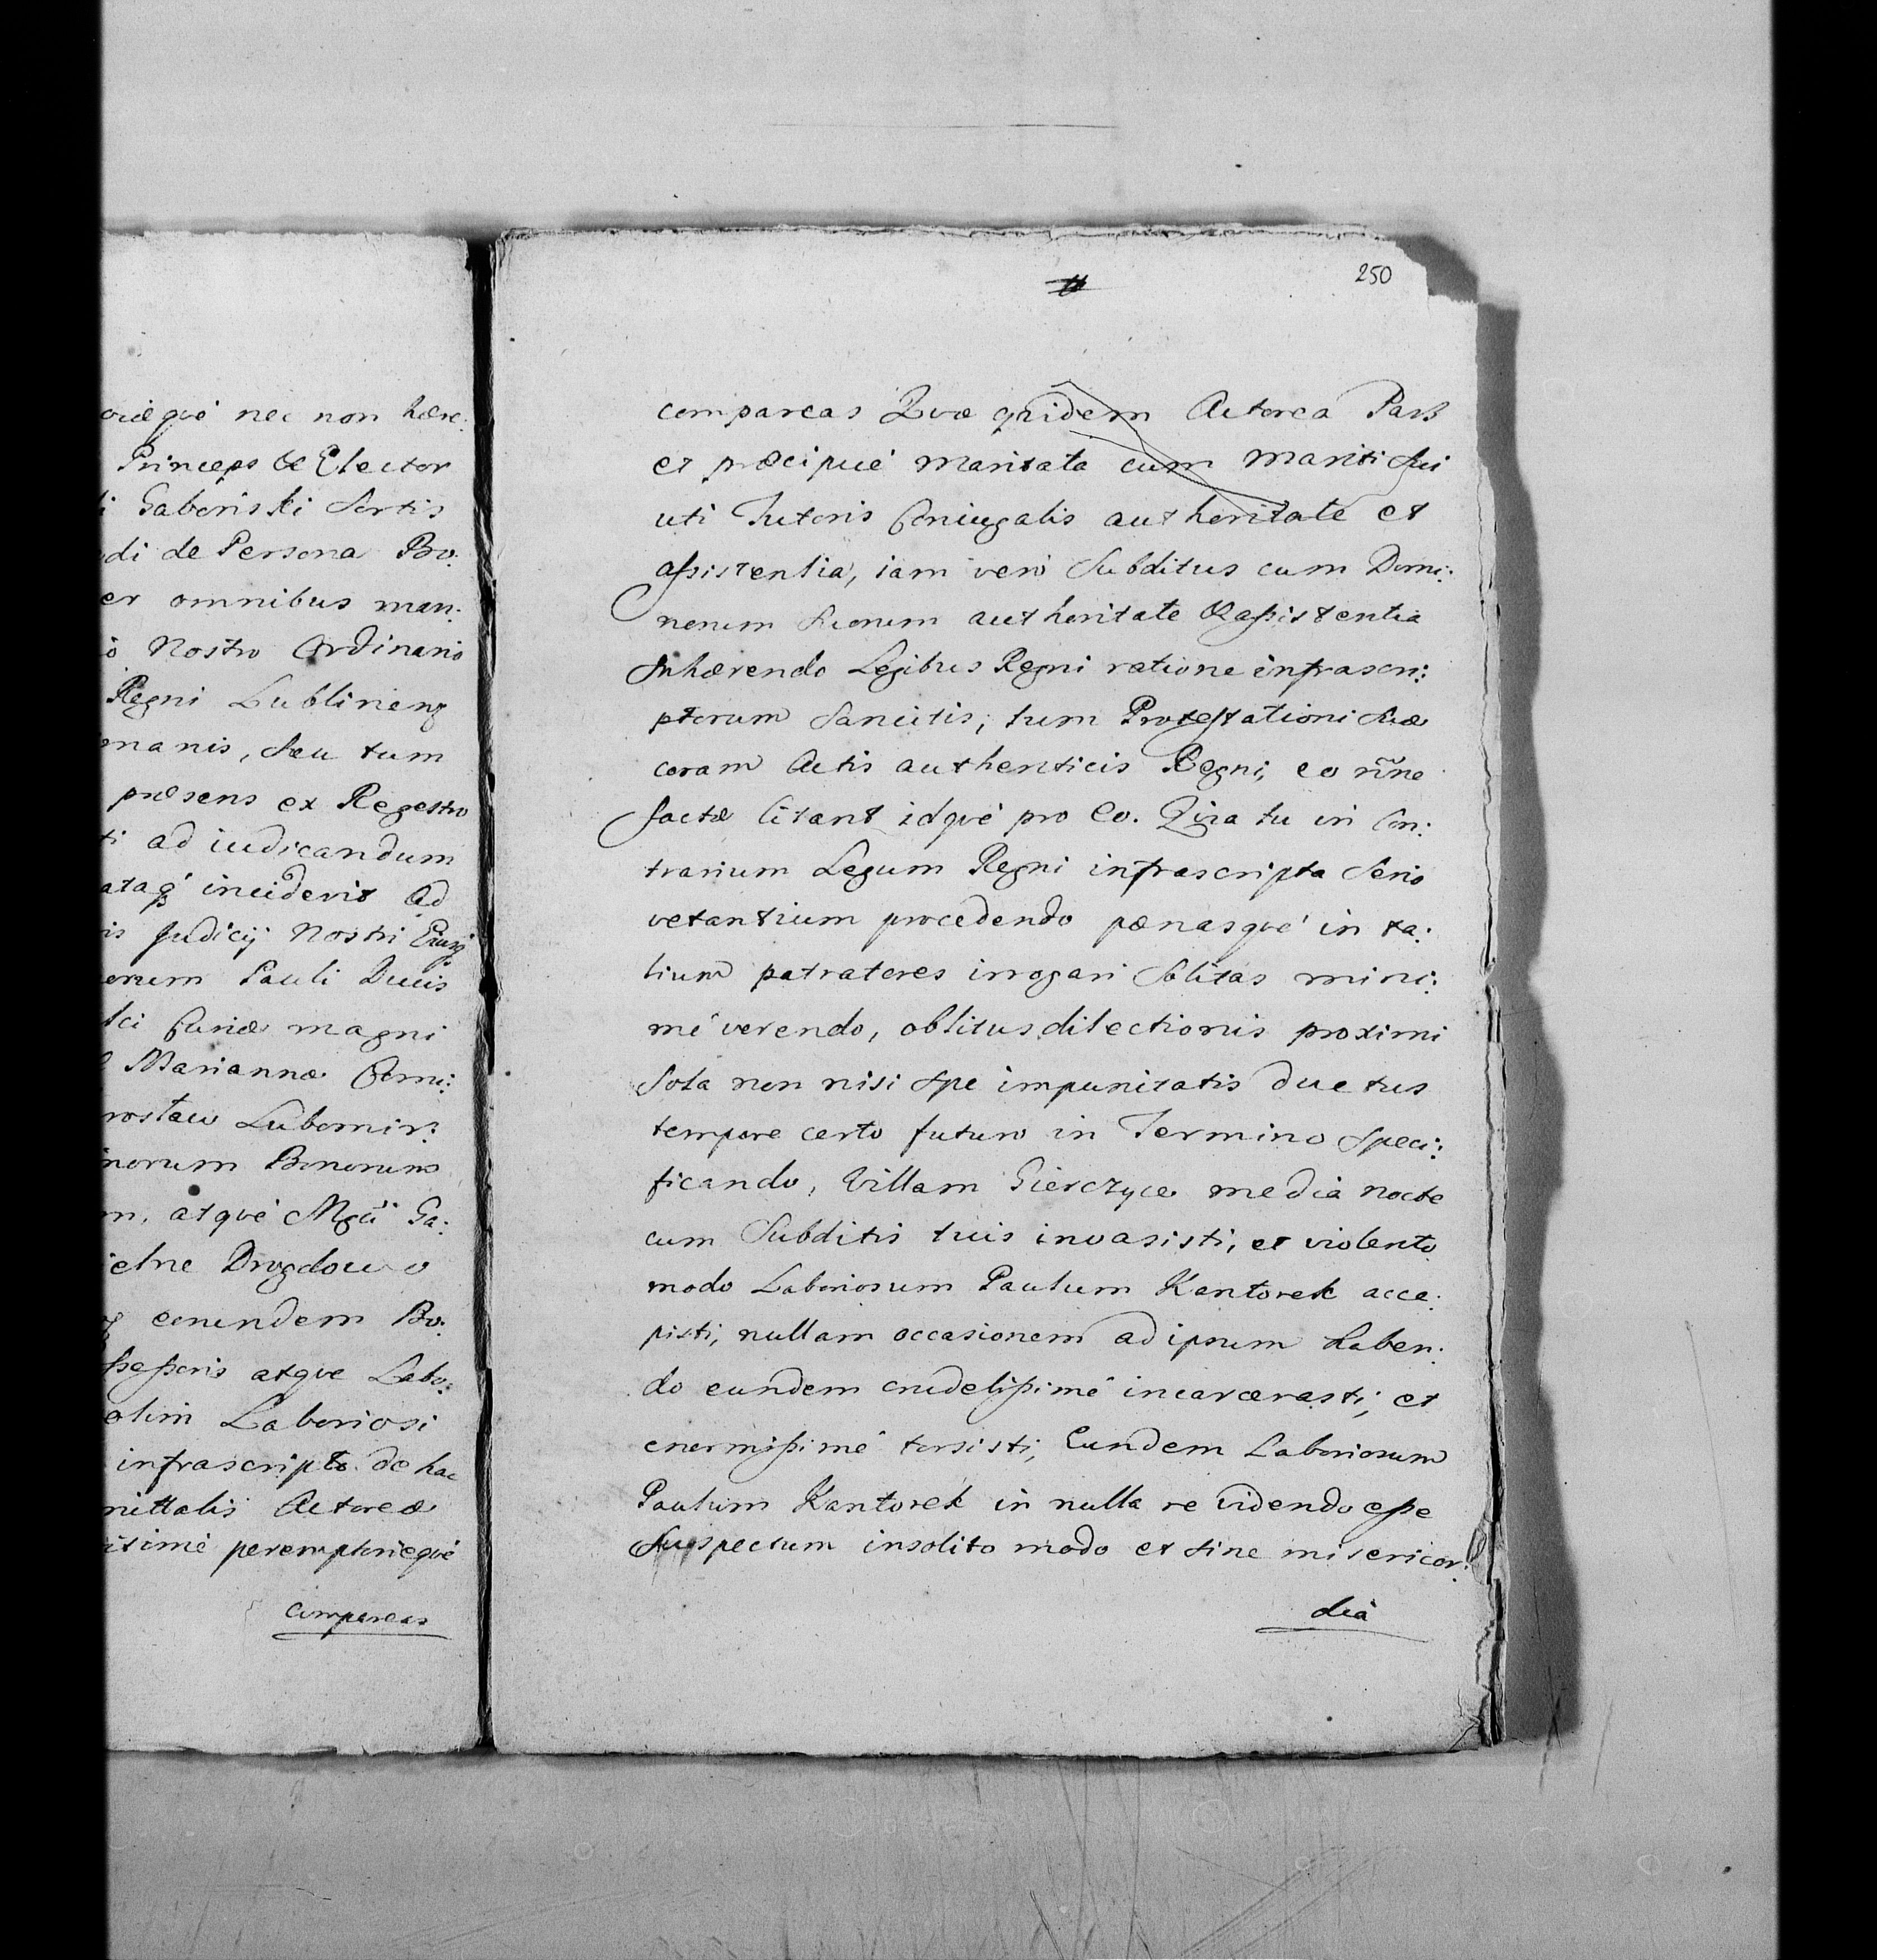 oriæqué nec non hære:
Princeps & Elector
Gaboński Sortis
di de Persona Bo:
er omnibus man:
o Nostro Ordinario
Regni Lublinen
manis, Seu tum
præsens ex Regestro
ti ad iudicandum
ataq incideris ad
is Judicij Nostri
orum Pauli Ducis
lci Curiæ magni
Mariannæ Comi:
rostaw Lubomir:
norum Bonorum
m, atqué Mgci Ga:
ielne Drogdowo
eorundem Bo:
ßeßoris atque Labo:
olim Laboriosi
infrascripto de hac
mittalis Actoreæ
itimé peremptoriequé
compareas
250
compareas Quæ quidem Actorea Pars
et præcipué maritata cum mariti Sui
uti Tutoris Coniugalis authoritate et
aßistentia, iam veró Subditus cum Domi:
norum Suorum authoritate & aßistentia
Inhærendo Legibus Regni ratione infrascri:
ptorum Sancitis, tum Protestationi Suæ
coram Actis authenticis Regni, eo nñe
factæ Citant idqué pro eo. Quia tu in Con:
trarium Legum Regni infrascripta Serio
vetantium procedendo pænasqué in ta:
lium patratores irrogari Solitas mini:
mé verendo, oblitus dilectionis proximi
Sola non nisi Spe impunitatis ductus
tempore certo futuro in Termino Speci:
ficando, Villam Gierczyce media nocte
cum Subditis tuis invasisti, et violento
modo Laboriosum Paulum Kantorek acce:
pisti, nullam occasionem ad ipsum haben:
do eundem crudelißimé incarcerasti, et
enormißimé torsisti, Eundem Laboriosum
Paulum Kantorek in nulla re videndo eße
Suspectum insolito modo et sine misericor:
diâ